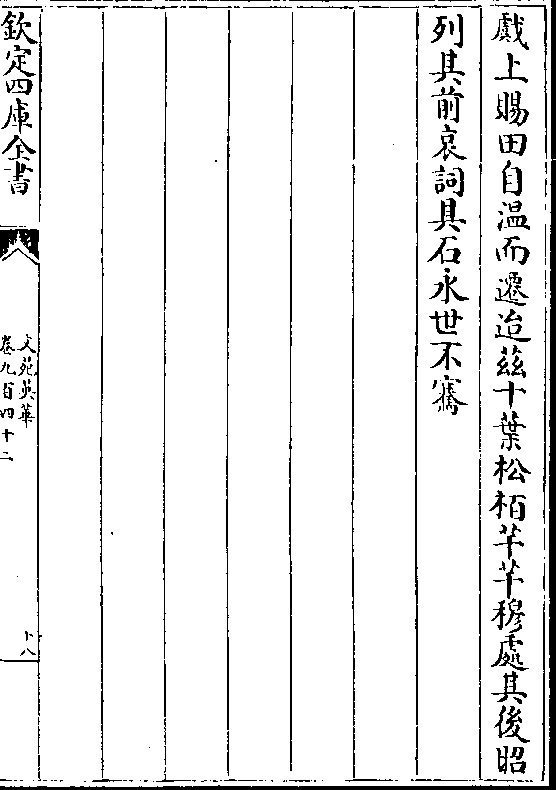 戲上賜田自溫而遷迨茲十葉松栢芊芊穆處其後昭
列其前哀詞具石永世不騫
欽定四庫全書
文苑英華
卷九百四十二
十八